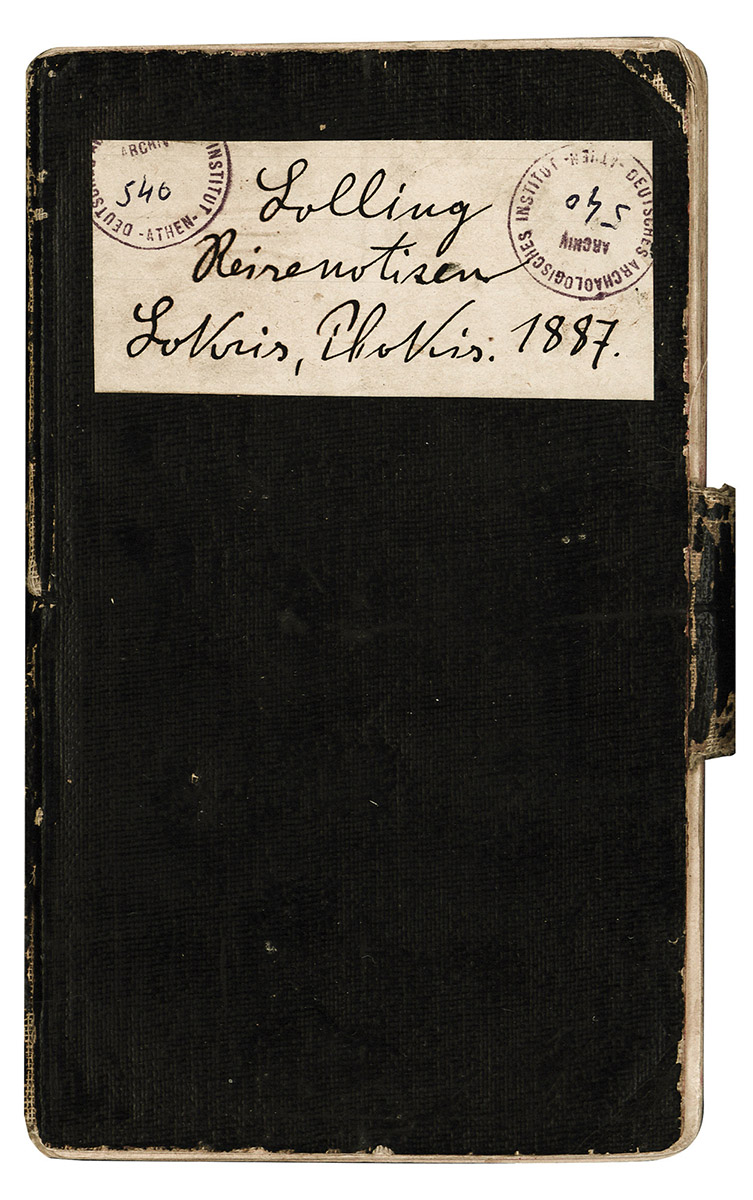 ARCHIV
INSTITUT
DEUTSCHES
-ATHEN-
540
Lolling
Reisenotizen
Lokris, Phokis. 1887.
DEUTSCHES ARCHAOLOGISCHES INSTITUT -ATHEN-
ARCHIV
540